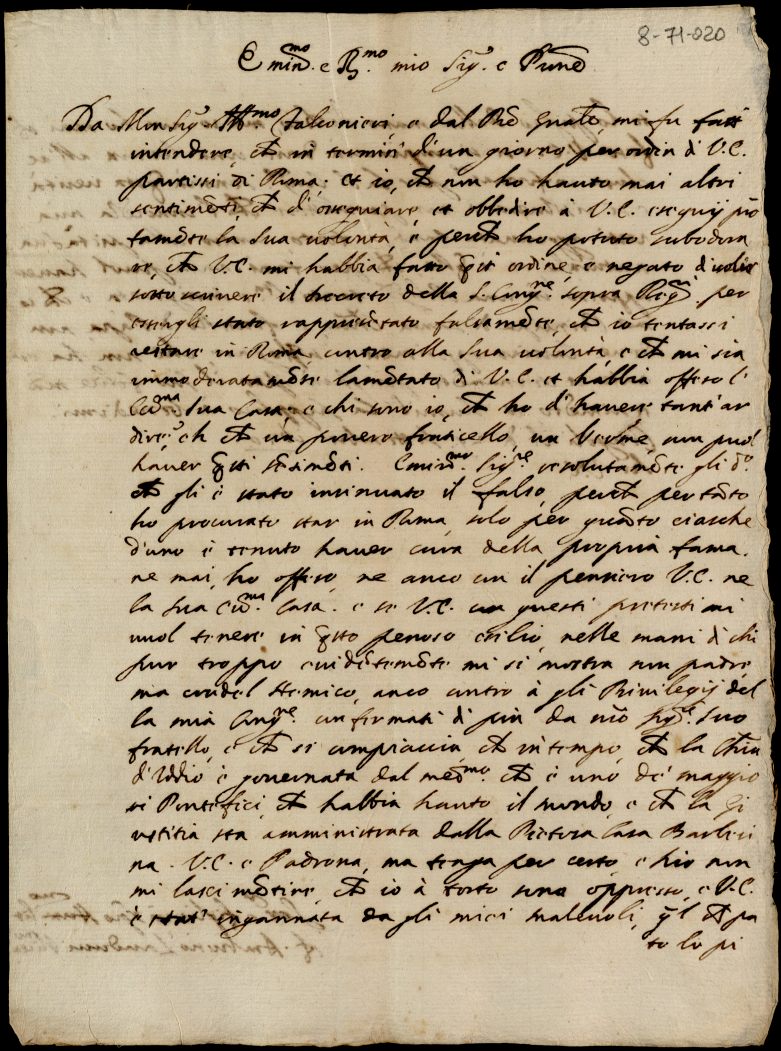 8-71-020
Emin.mo e R.mo mio Sig.r e Prone
Da Monsig.r Ill.mo Falconieri, e dal Pre Gnale, mi fu fatt'
intendere, ch in termini d'un giorno per ordin di V.E.
partissi di Roma; et io, ch non ho hauto mai altri
sentimenti, ch d'ossequiare et obbedire à V.E. eseguij pron
tamente la sua uolontà, e perch ho potuto subodora
re, ch V.E. mi habbia fatto qst' ordine, e negato di uoler
sottoscriuere il decreto della S. Cong.ne sopra per
essergli stato rappresentato falsamente, ch io tentassi
restare in Roma contro alla sua uolontà, e ch mi sia
immoderatamente lamentato di V.E. et habbia offeso l'
Ecc.ma sua Casa; e chi sono io, ch ho d'hauere tant'ar
dire, ch un pouero fraticello, un Verme, non puol
hauer qsti sentimenti. Emin.mo Sig.re resolutamente gli do
ch gli è stato insinuato il falso, perch per tanto
ho procurato star in Roma, solo per quanto ciasche
d'uno è tenuto hauer cura della propria fama.
ne mai ho offeso, ne anco con il pensiero V.E. ne
la sua Ecc.ma Casa. e se V.E. con questi pretesti mi
uuol tenere in qsto penoso esilio, nelle mani di chi
pur troppo euidentemente mi si mostra non padre,
ma crudel Nemico, anco contro à gli Priuilegij del
la mia Cong.ne confirmati di più da nro Sig.re suo
fratello, e ch si compiaccia, ch in tempo, ch la Chiesa
d'Iddio è gouernata dal med.mo ch è uno de' maggio
ri Pontefici, ch habbia hauto il mondo, e ch la Gi
ustitia sta amministrata dalla Casa Barberi
na. V.E. è Padrona, ma tenga per certo, e Dio non
mi lasci mentire, ch io à torto sono oppresso, e V.E.
è stat' ingannata dagli miei maleuoli, ql ch pa
to lo pi